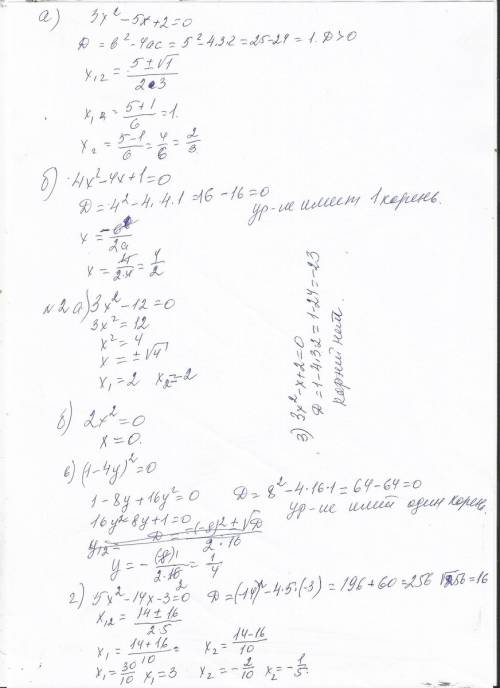 а) 3x² - 5x + 2 = 0
D = b² - 4ac = 5² - 4·3·2 = 25 - 24 = 1. D > 0
x₁,₂ = (5 ± √1)/(2·3)
x₁,₂ = (5+1)/6 = 1.
x₂ = (5-1)/6 = 4/6 = 2/3
б) 4x² - 4x + 1 = 0
D = 4² - 4·4·1 = 16 - 16 = 0
ур-ие имеет 1 корень.
x = -b/2a
x = 4/(2·4) = 1/2
№2 а) 3x² - 12 = 0
3x² = 12
x² = 4
x = ±√4
x₁ = 2 x₂ = -2
б) 2x² = 0
x = 0.
з) 3x² - x + 2 = 0
D = 1 - 4·3·2 = 1 - 24 = -23
корней нет.
в) (1 - 4y)² = 0
1 - 8y + 16y² = 0 D = 8² - 4·16·1 = 64 - 64 = 0
16y² - 8y + 1 = 0 ур-ие имеет один корень.
y = -(-8)/(2·16) = 1/4
г) 5x² - 14x - 3 = 0 D = (-14)² - 4·5·(-3) = 196 + 60 = 256 √256 = 16
x₁,₂ = (14 ± 16)/(2·5)
x₁ = (14+16)/10 = x₂ = (14-16)/10
x₁ = 30/10 x₁ = 3 x₂ = -2/10 x₂ = -1/5.